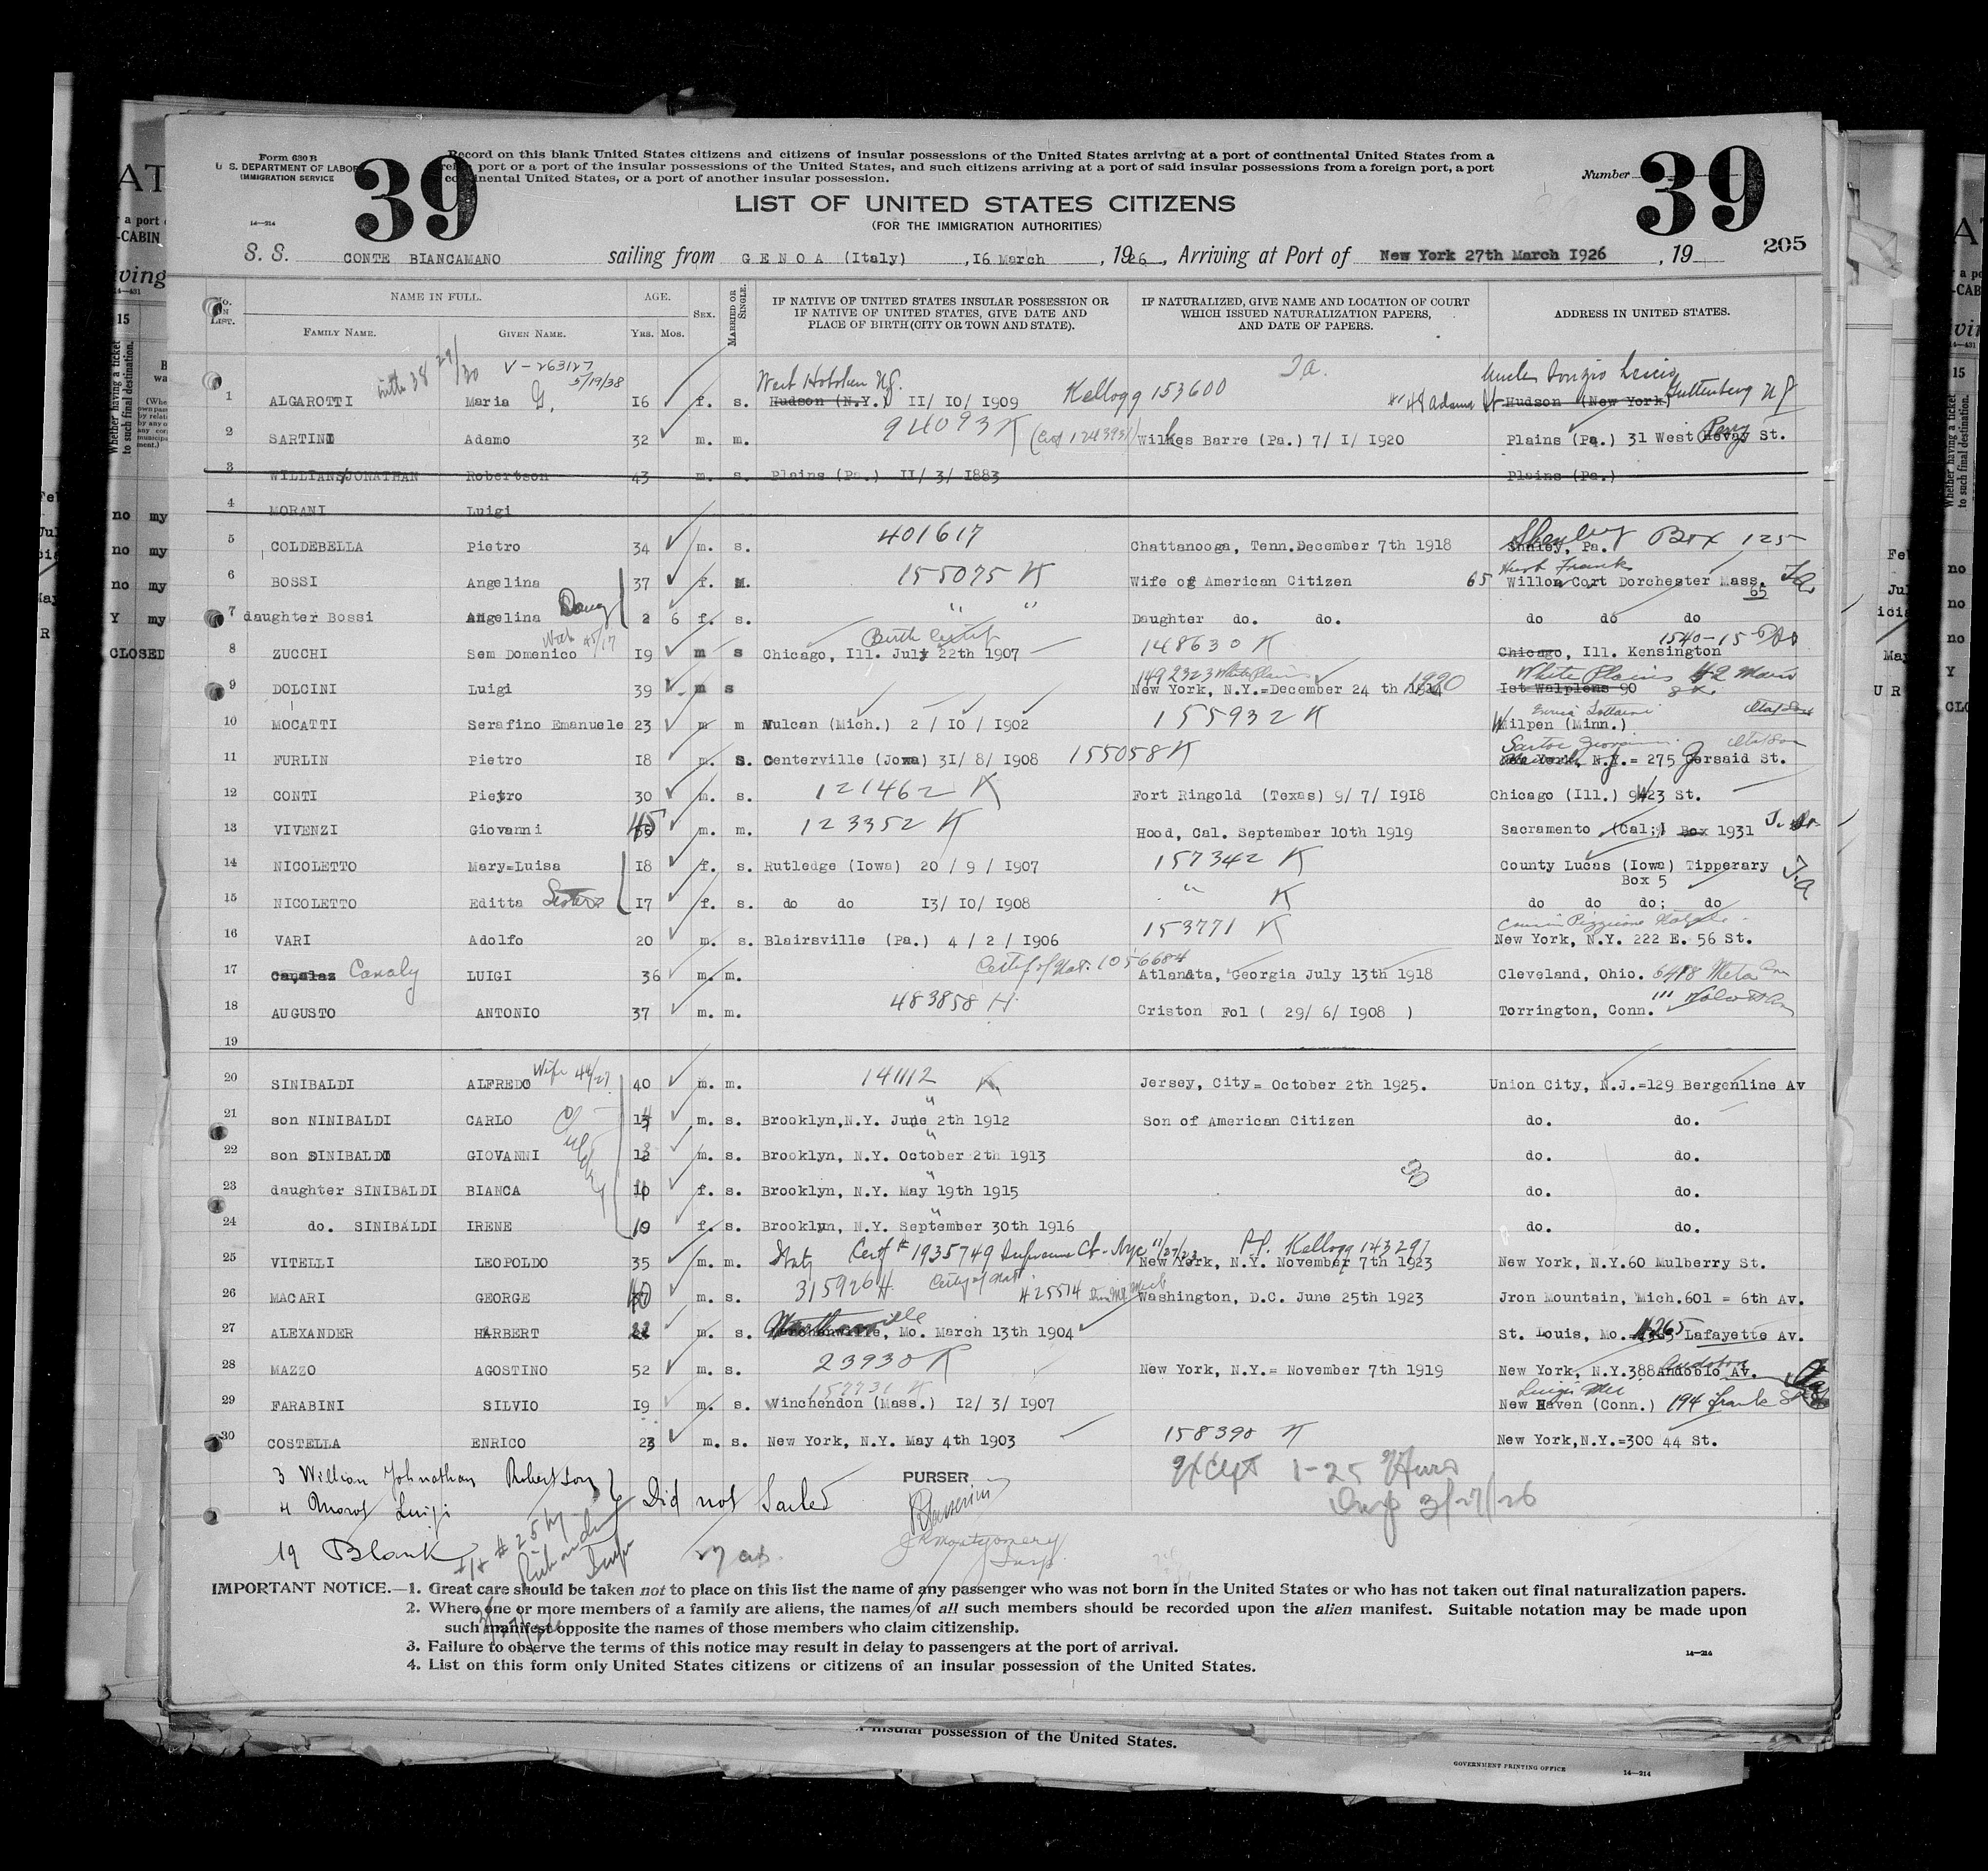 Form 630 B
U. S. DEPARTMENT OF LABOR
IMMIGRATION SERVICE
14—214
39
Record on this blank United States citizens and citizens of insular possessions of the United States arriving at a port of continental United States from a
port or a port of the insular possessions of the United States, and such citizens arriving at a port of said insular possessions from a foreign port, a port
continental United States, or a port of another insular possession.
Number
39
LIST OF UNITED STATES CITIZENS
(FOR THE IMMIGRATION AUTHORITIES)
205
S. S. CONTE BIANCAMANO sailing from GENOA (Italy), 16 March, 1926, Arriving at Port of New York 27th March 1926, 19
No. ON LIST. NAME IN FULL. AGE. SEX. MARRIED OR SINGLE. IF NATIVE OF UNITED STATES INSULAR POSSESSION OR IF NATIVE OF UNITED STATES, GIVE DATE AND PLACE OF BIRTH (CITY OR TOWN AND STATE). IF NATURALIZED, GIVE NAME AND LOCATION OF COURT WHICH ISSUED NATURALIZATION PAPERS, AND DATE OF PAPERS. ADDRESS IN UNITED STATES.
FAMILY NAME. GIVEN NAME. YRS. MOS.
V-263127
5/19/38
29/30
West Hoboken N.J. Uncle
1 ALGAROTTI Maria G. 16 f. s. Hudson (N.Y.) 11/ 10/ 1909 Kellogg 153600 48 Adams St Hudson (New York) Guttenberg N J
94093 K
2 SARTINI Adamo 32 m. m. Wilkes Barre (Pa.) 7/ 1/ 1920 Plains (Pa.) 31 West St.
3 WILLIANS/JONATHAN Robertson 43 m. s. Plains (Pa.) 11/ 3/ 1883 Plains (Pa.)
4 MORANI Luigi
401617
5 COLDEBELLA Pietro 34 m. s. Chattanooga, Tenn. December 7th 1918 Shaley, Pa. Box 125
155075 K
6 BOSSI Angelina 37 f. M. Wife of American Citizen 65 Willow Cort Dorchester Mass.
65
7 daughter Bossi Angelina 2 6 f. s. " " Daughter do. do. do do do
Birth Certif 148630 K
8 ZUCCHI Sem Domenico 19 m s Chicago, Ill. July 22th 1907 Chicago, Ill. Kensington
White Plains 42 Main
9 DOLCINI Luigi 39 m s New York, N.Y.=December 24 th 1920 Ist Walplens 90
155932 K
10 MOCATTI Serafino Emanuele 23 m m Vulcan (Mich.) 2 / 10 / 1902 Wilpen (Minn.)
11 FURLIN Pietro 18 m. s. Centerville (Jowa) 31/ 8/ 1908 155058 K N.J. = 275 Gersaid St.
121462 K
12 CONTI Pietro 30 m. s. Fort Ringold (Texas) 9/ 7/ 1918 Chicago (Ill.) 9423 St.
123352 K
13 VIVENZI Giovanni 45 m. m. Hood, Cal. September 10th 1919 Sacramento (Cal;) Box 1931
157342 K
14 NICOLETTO Mary=Luisa 18 f. s. Rutledge (Iowa) 20 / 9 / 1907 County Lucas (Iowa) Tipperary
Box 5
15 NICOLETTO Editta Sisters 17 f. s. do do 13/ 10/ 1908 " K do do do; do
153771 K
16 VARI Adolfo 20 m. s. Blairsville (Pa.) 4 / 2 / 1906 New York, N.Y. 222 E. 56 St.
Certif of Nat.
17 Canalaz Canaly LUIGI 36 m. m. Atlanta, Georgia July 13th 1918 Cleveland, Ohio. 6418 Meta
483858 H
18 AUGUSTO ANTONIO 37 m. m. Criston Fol ( 29/ 6/ 1908 ) Torrington, Conn.
19
141112 K
20 SINIBALDI ALFREDO Wife 40 m. m. Jersey, City= October 2th 1925. Union City, N.J.=129 Bergenline Av
21 son NINIBALDI CARLO 13 m. s. Brooklyn,N.Y. June 2th 1912 Son of American Citizen do. do.
22 son SINIBALDI GIOVANNI 12 m. s. Brooklyn, N.Y. October 2th 1913 do. do.
23 daughter SINIBALDI BIANCA 10 f. s. Brooklyn, N.Y. May 19th 1915 do. do.
24 do. SINIBALDI IRENE 10 f. s. Brooklyn, N.Y. September 30th 1916 do. do.
Cert # 1935749 Supreme Ct - Nyc 11/27/23 Kellogg 143291
25 VITELLI LEOPOLDO 35 m. m. New York, N.Y. November 7th 1923 New York, N.Y.60 Mulberry St.
315926 H
26 MACARI GEORGE 40 m. s. Washington, D.C. June 25th 1923 Jron Mountain, Mich.601 = 6th Av.
27 ALEXANDER HARBERT 22 m. s. Mo. March 13th 1904 St. Louis, Mo. Lafayette Av.
23930 K
28 MAZZO AGOSTINO 52 m. s. New York, N.Y.= November 7th 1919 New York, N.Y.388 Andobio Av.
29 FARABINI SILVIO 19 m. s. Winchendon (Mass.) 12/ 3/ 1907 New Haven (Conn.) 194 Frank St
158390 K
30 COSTELLA ENRICO 23 m. s. New York, N.Y. May 4th 1903 New York,N.Y.=300 44 St.
3 Willian Johnathan Robertson
4 Luigi Did not Sailed
PURSER
3/27/26
JR Montgomery
Insp.
19 Blank
IMPORTANT NOTICE.—1. Great care should be taken not to place on this list the name of any passenger who was not born in the United States or who has not taken out final naturalization papers.
2. Where one or more members of a family are aliens, the names of all such members should be recorded upon the alien manifest. Suitable notation may be made upon
such manifest opposite the names of those members who claim citizenship.
3. Failure to observe the terms of this notice may result in delay to passengers at the port of arrival.
4. List on this form only United States citizens or citizens of an insular possession of the United States.
14—214
insular possession of the United States.
GOVERNMENT PRINTING OFFICE 14—214